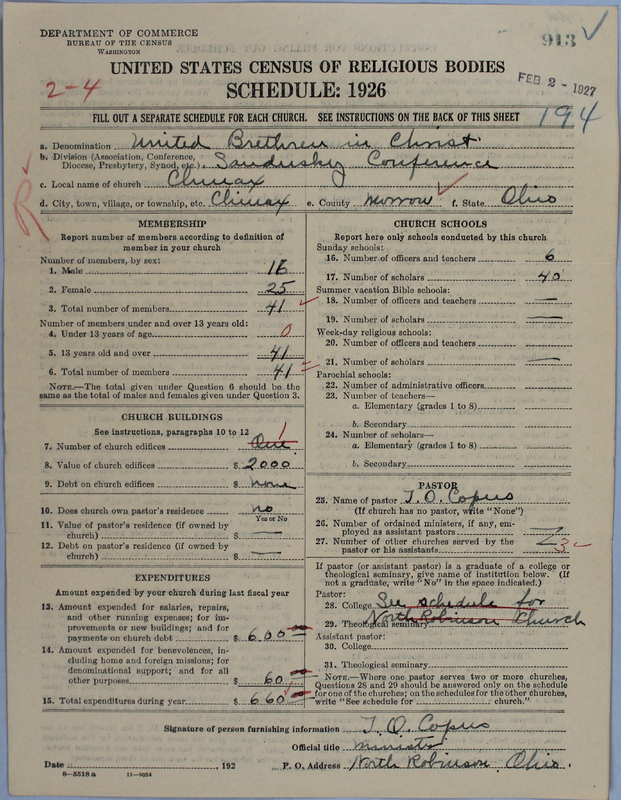 DEPARTMENT OF COMMERCE
BUREAU OF THE CENSUS
WASHINGTON
913
UNITED STATES CENSUS OF RELIGIOUS BODIES
FEB 2 - 1927
2-4
SCHEDULE: 1926
194
FILL OUT A SEPARATE SCHEDULE FOR EACH CHURCH. SEE INSTRUCTIONS ON THE BACK OF THIS SHEET
a. Denomination United Brethren in Christ
b. Division (Association, Conference, Diocese, Presbytery, Synod, etc.) Sandusky Conference
c. Local name of church Climax
d. City, town, village, or township, etc. Climax e. County Morrow f. State Ohio
MEMBERSHIP
Report number of members according to definition of
member in your church
Number of members, by sex:
1. Male 16
2. Female 25
3. Total number of members 41
Number of members under and over 13 years old:
4. Under 13 years of age 0
5. 13 years old and over 41
6. Total number of members 41
NOTE.—The total given under Question 6 should be the
same as the total of males and females given under Question 3.
CHURCH BUILDINGS
See instructions, paragraphs 10 to 12
7. Number of church edifices One 1
8. Value of church edifices $ 2000
9. Debt on church edifices $ none
10. Does church own pastor's residence no
Yes or No
11. Value of pastor's residence (if owned by
church) $ —
12. Debt on pastor's residence (if owned by
church) $ —
EXPENDITURES
Amount expended by your church during last fiscal year
13. Amount expended for salaries, repairs,
and other running expenses; for im-
provements or new buildings; and for
payments on church debt $ 600
14. Amount expended for benevolences, in-
cluding home and foreign missions; for
denominational support; and for all
other purposes $ 60
15. Total expenditures during year $ 660
CHURCH SCHOOLS
Report here only schools conducted by this church
Sunday schools:
16. Number of officers and teachers 6
17. Number of scholars 40
Summer vacation Bible schools:
18. Number of officers and teachers —
19. Number of scholars —
Week-day religious schools:
20. Number of officers and teachers
21. Number of scholars —
Parochial schools:
22. Number of administrative officers
23. Number of teachers—
a. Elementary (grades 1 to 8)
b. Secondary
24. Number of scholars—
a. Elementary (grades 1 to 8)
b. Secondary
PASTOR
25. Name of pastor T. O. Copus
(If church has no pastor, write "None")
26. Number of ordained ministers, if any, em-
ployed as assistant pastors —
27. Number of other churches served by the
pastor or his assistants 3
If pastor (or assistant pastor) is a graduate of a college or
theological seminary, give name of institution below. (If
not a graduate, write "No" in the space indicated.)
Pastor:
28. College See schedule for
29. Theological seminary North Robinson Church
Assistant pastor:
30. College
31. Theological seminary
NOTE.—Where one pastor serves two or more churches,
Questions 28 and 29 should be answered only on the schedule
for one of the churches; on the schedules for the other churches,
write "See schedule for church."
Signature of person furnishing information T. O. Copus
Official title Minister
Date , 192 P. O. Address North Robinson, Ohio.
8—5518a 11—9054